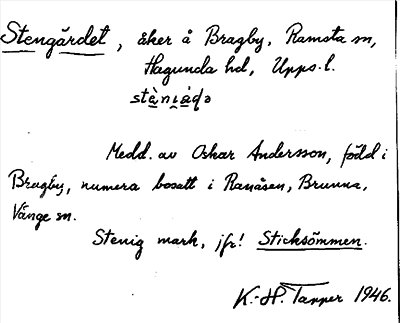 Stengärdet, åker å Bragby, Ramsta sn,
Hagunda hd, Upps. l.
Medd. av Oskar Andersson, född i
Bragby, numera bosatt i Ranåsen, Brunna,
Vänge sn.
Stenig mark, jfr! Sticksömmen.
K.-H. Tapper 1946.